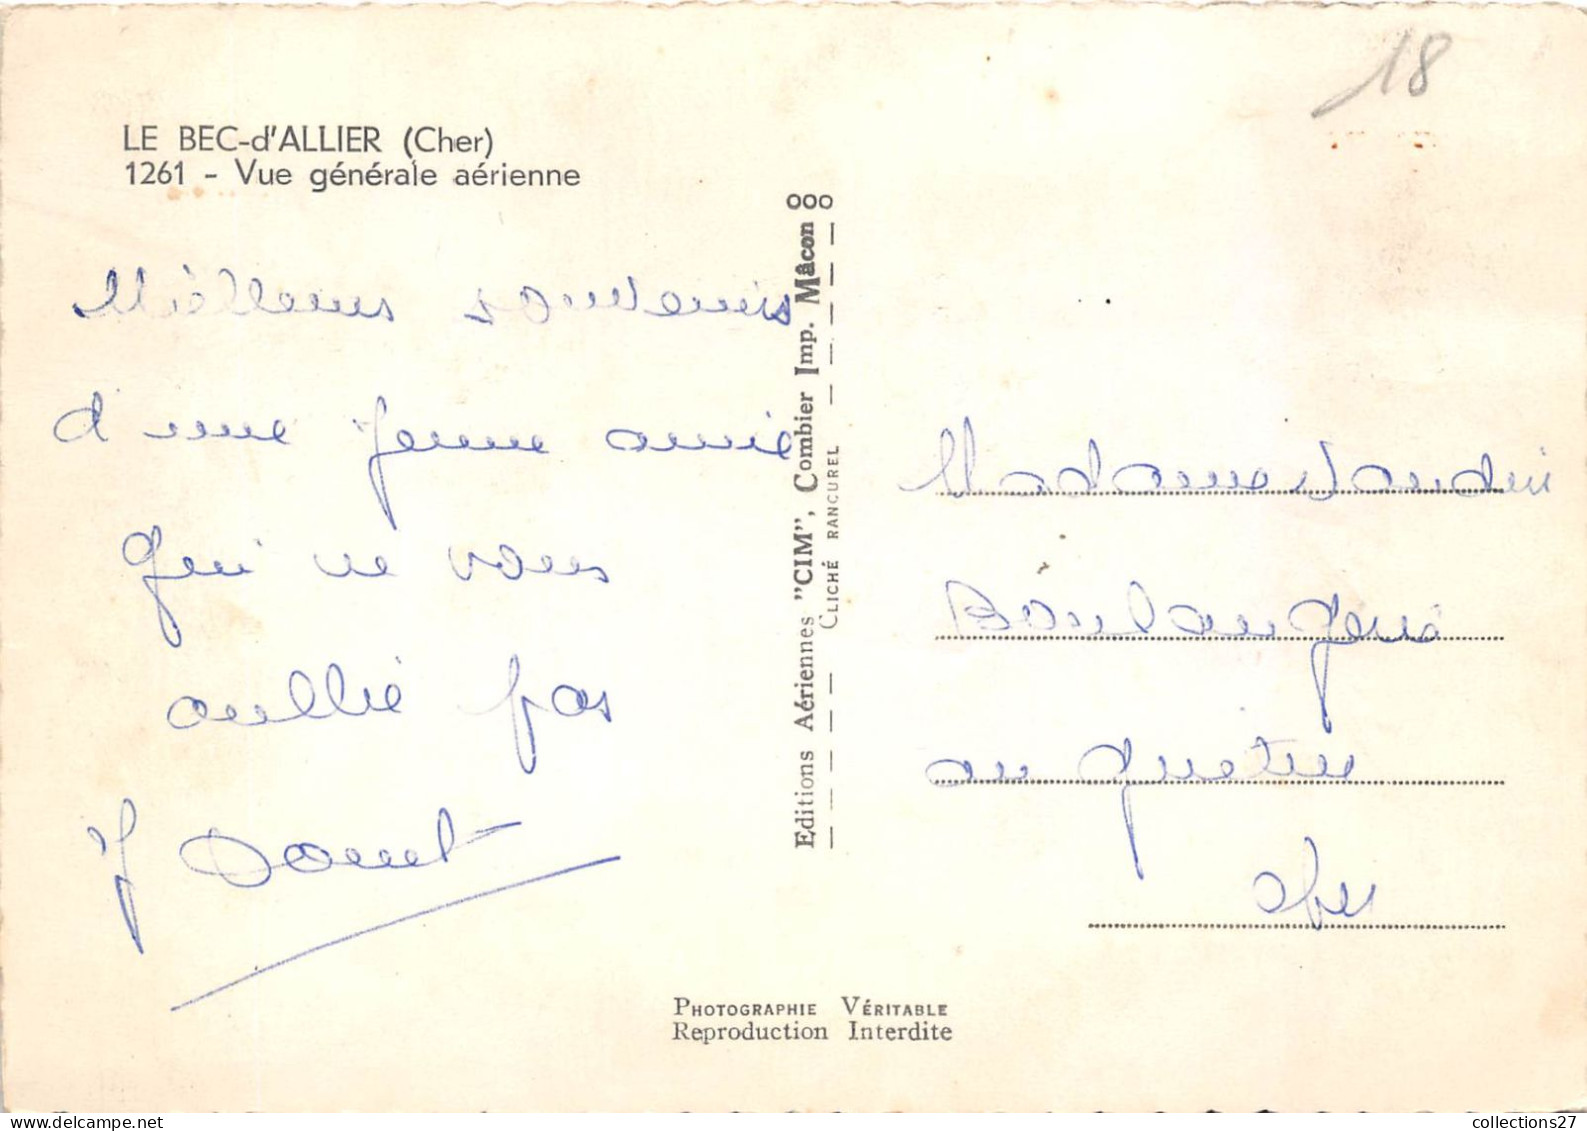 18
LE BEC-d'ALLIER (Cher)
1261 - Vue générale aérienne
Meilleurs souvenirs
d'une jeune amie
qui ne vous
oublie pas
Editions Aériennes "CIM", Combier Imp. Mâcon
CLICHÉ RANCUREL
Madame
Boulangerie
au
PHOTOGRAPHIE VÉRITABLE
Reproduction Interdite
collections27